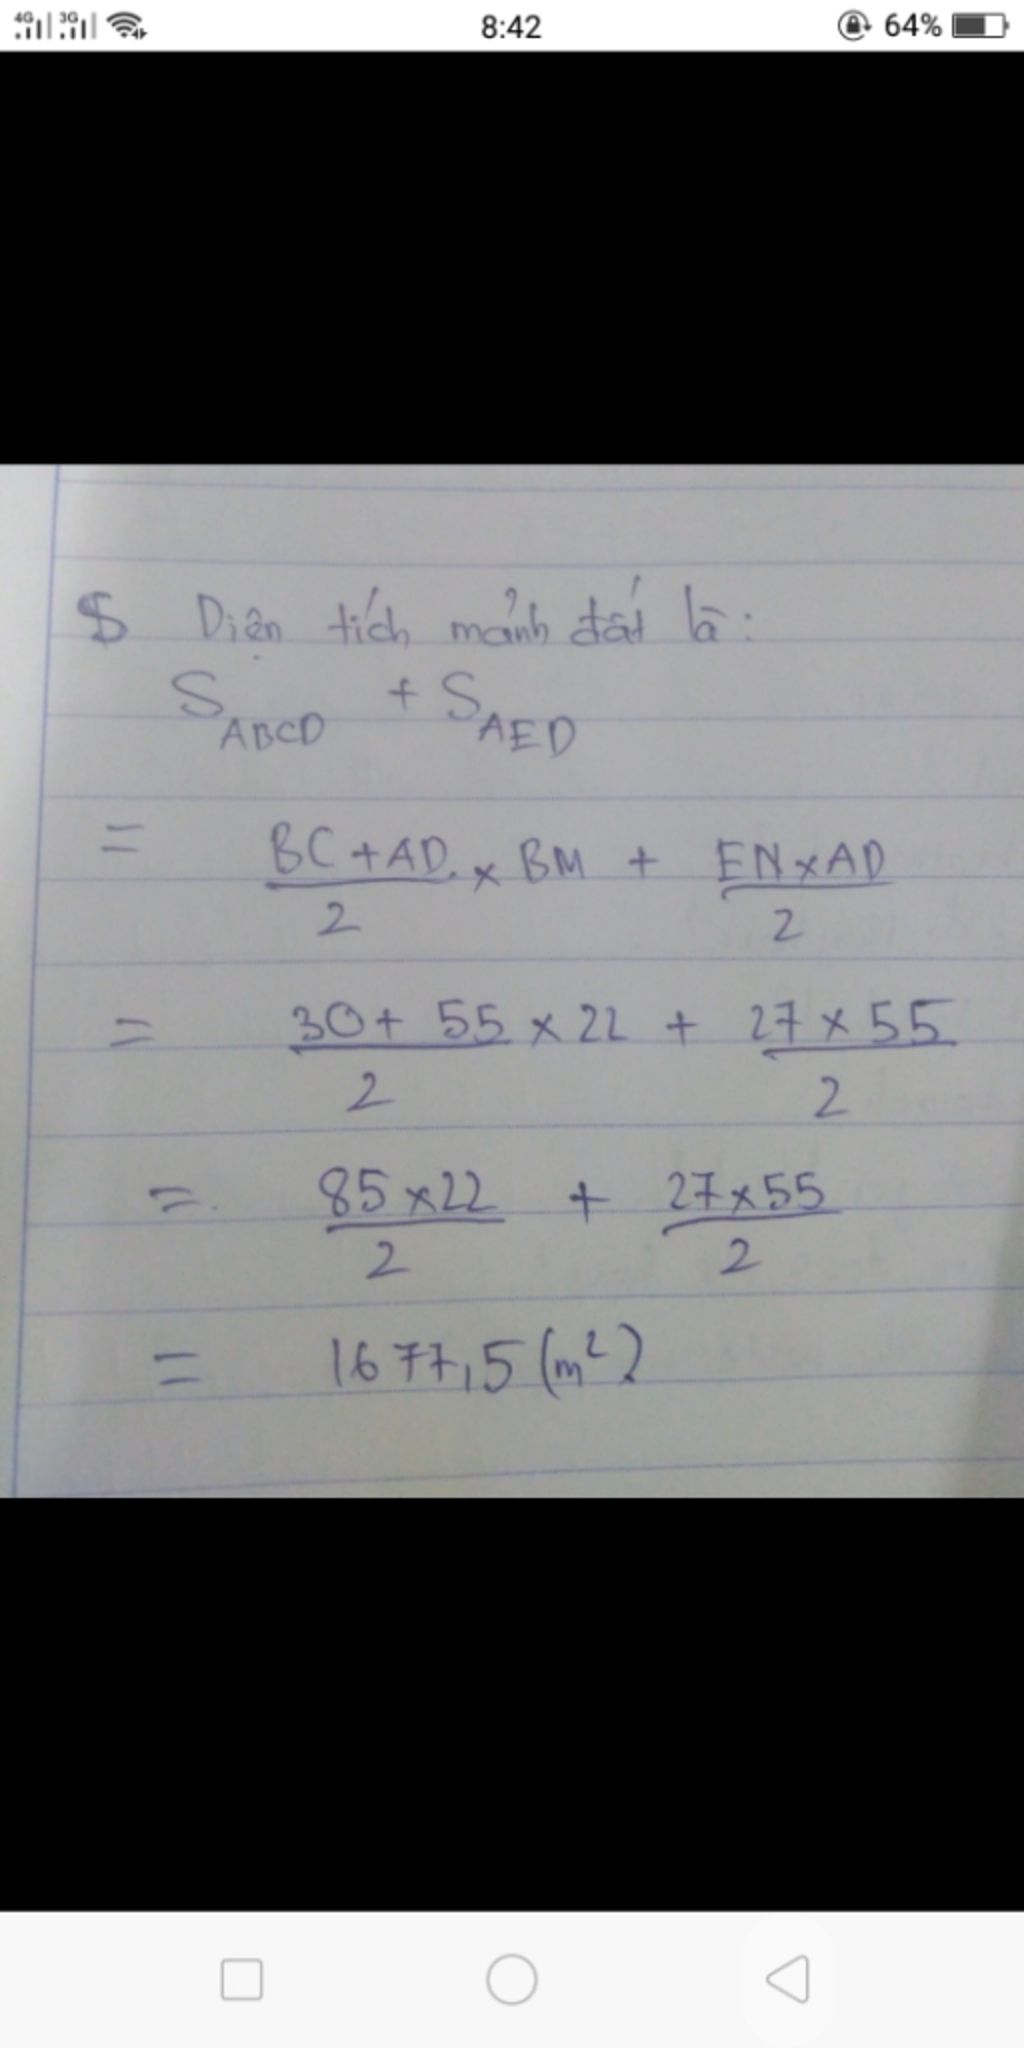 4G 3G 8:42 64%
$ Diện tích mảnh đất là:
S ABCD + S AED
= BC + AD / 2 × BM + EN × AD / 2
= 30 + 55 / 2 × 22 + 27 × 55 / 2
= 85 × 22 / 2 + 27 × 55 / 2
= 1677,5 (m²)